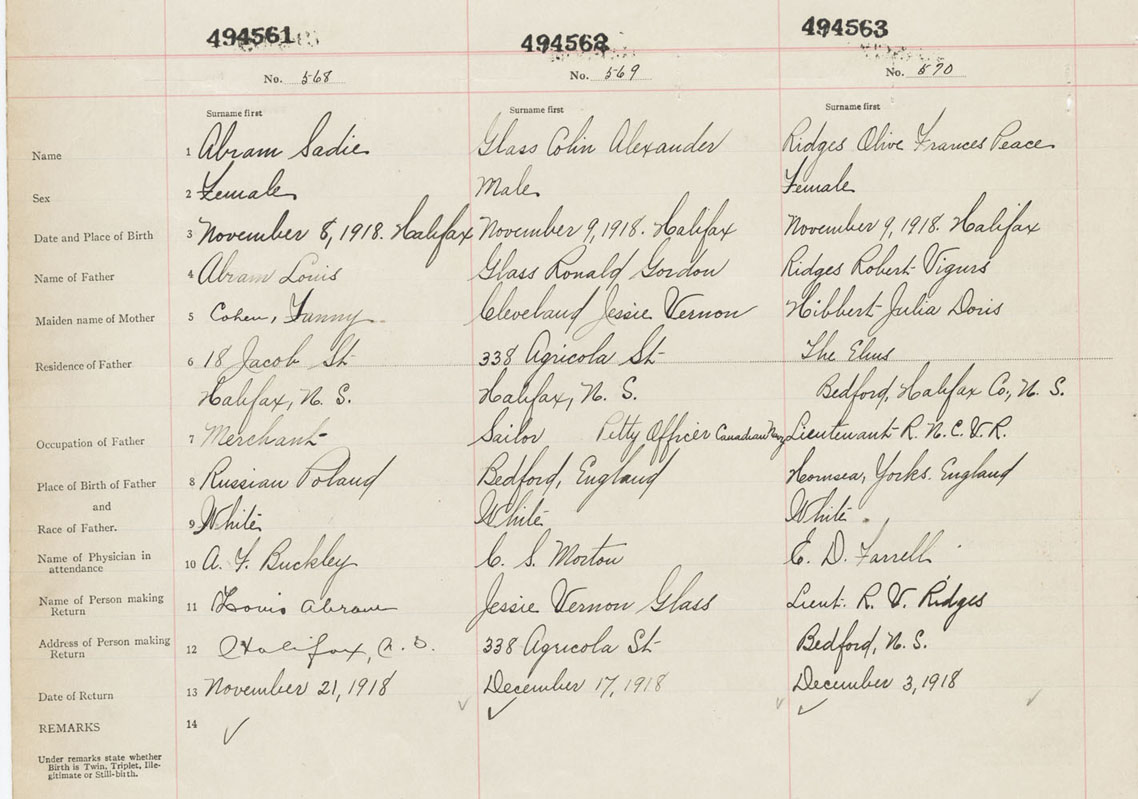 494561 494562 494563
No. 568 No. 569 No. 570
Surname first Surname first Surname first
Name 1 Abram Sadie Glass Colin Alexander Ridges Olive Frances Peace
Sex 2 Female Male Female
Date and Place of Birth 3 November 8, 1918. Halifax November 9, 1918. Halifax November 9, 1918. Halifax
Name of Father 4 Abram Louis Glass Ronald Gordon Ridges Robert Vigurs
Maiden name of Mother 5 Cohen, Fanny Cleveland Jessie Vernon Hibbert Julia Doris
Residence of Father 6 18 Jacob St 338 Agricola St The Elms
Halifax, N. S. Halifax, N. S. Bedford, Halifax Co., N. S.
Occupation of Father 7 Merchant Sailor Petty Officer Canadian Navy Lieutenant R. N. C. V. R.
Place of Birth of Father 8 Russian Poland Bedford, England Hornsea, Yorks. England
and
Race of Father. 9 White White White
Name of Physician in attendance 10 A. F. Buckley C. S. Morton E. D. Farrell
Name of Person making Return 11 Louis Abram Jessie Vernon Glass Lieut. R. V. Ridges
Address of Person making Return 12 Halifax, N. S. 338 Agricola St Bedford, N. S.
Date of Return 13 November 21, 1918 December 17, 1918 December 3, 1918
REMARKS 14
Under remarks state whether
Birth is Twin, Triplet, Ille-
gitimate or Still-birth.